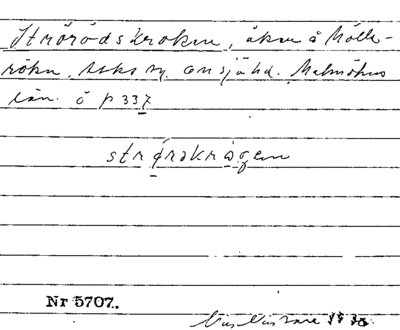 Strörödskroken, åker å Mölle-
röku. soks sn. onsjöhd. Malmöhus
län. ö p 337
strǿrskrågen
Nr 5707.